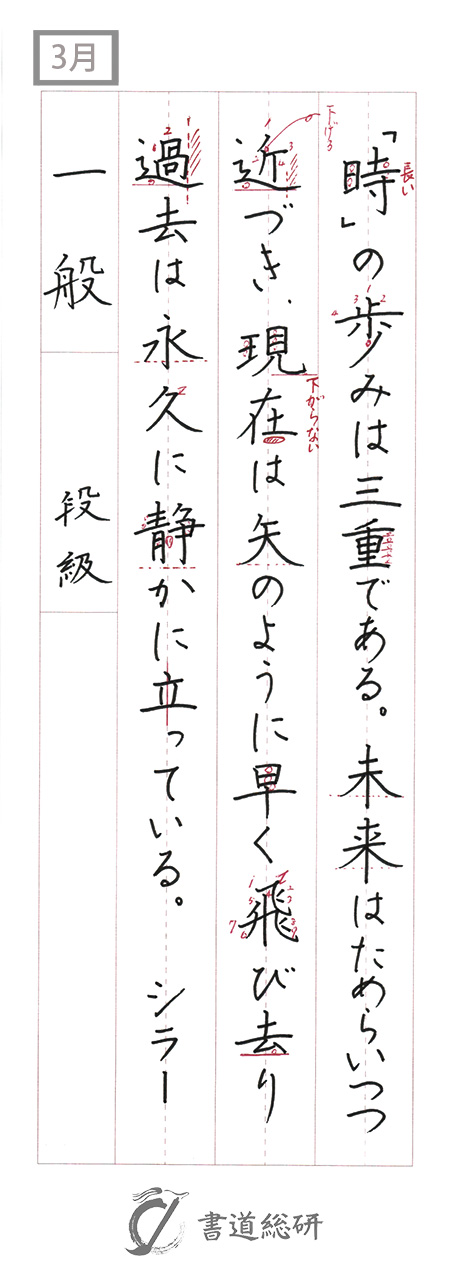 3月
「時」の歩みは三重である。未来はためらいつつ
近づき、現在は矢のように早く飛び去り
過去は永久に静かに立っている。 シラー
一般
段級
下げる
長い
下がらない
書道総研